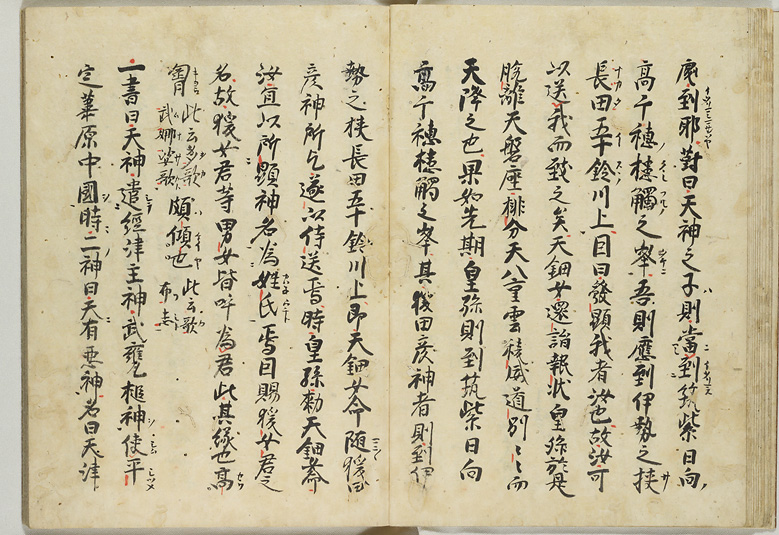 處到耶對曰天神之子則當到筑紫日向
高千穗槵觸之峯吾則應到伊勢之狹
長田五十鈴川上因曰發顯我者汝也故汝可
以送我而致之矣天鈿女還詣報狀皇孫於是
脫離天磐座排分天八重雲稜威道別〻〻而
天降之也果如先期皇孫則到筑紫日向
高千穗槵觸之峯其猨田彥神者則到伊
勢之狹長田五十鈴川上即天鈿女命隨猨田
彥神所乞遂以侍送焉時皇孫勑天鈿女
汝宜以所顯神名為姓氏焉因賜猨女君之
名故猨女君等男女皆呼為君此其緣也高
胷此云多歌武娜娑歌頗傾也此云歌布志
一書曰天神遣經津主神武甕槌神使平
定葦原中國時二神曰天有惡神名曰天津